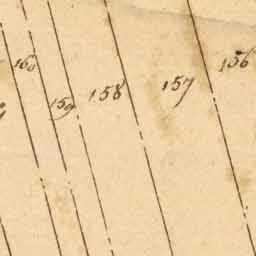 160
159
158
157
156